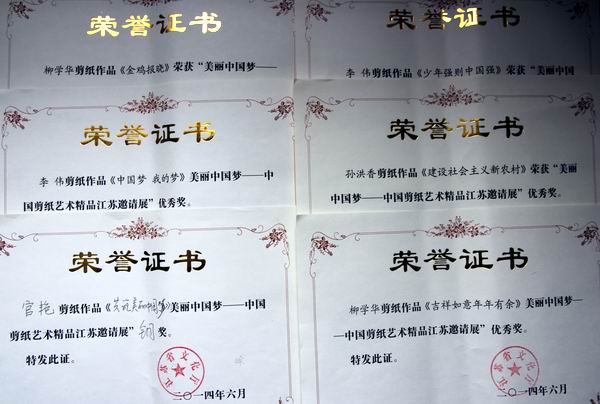 荣誉证书
柳学华剪纸作品《金鸡报晓》荣获“美丽中国梦——
荣誉证书
李 伟剪纸作品《少年强则中国强》荣获“美丽中国
荣誉证书
李 伟剪纸作品《中国梦 我的梦》美丽中国梦——中
国剪纸艺术精品江苏邀请展”优秀奖。
荣誉证书
孙洪香剪纸作品《建设社会主义新农村》荣获“美丽
中国梦——中国剪纸艺术精品江苏邀请展”优秀奖。
荣誉证书
官艳剪纸作品《共筑美丽中国梦》美丽中国梦——中国
剪纸艺术精品江苏邀请展”铜奖。
特发此证。
江苏省文化厅
二〇一四年六月
荣誉证书
柳学华剪纸作品《吉祥如意年年有余》美丽中国梦—
—中国剪纸艺术精品江苏邀请展”优秀奖。
特发此证。
江苏省文化厅
二〇一四年六月